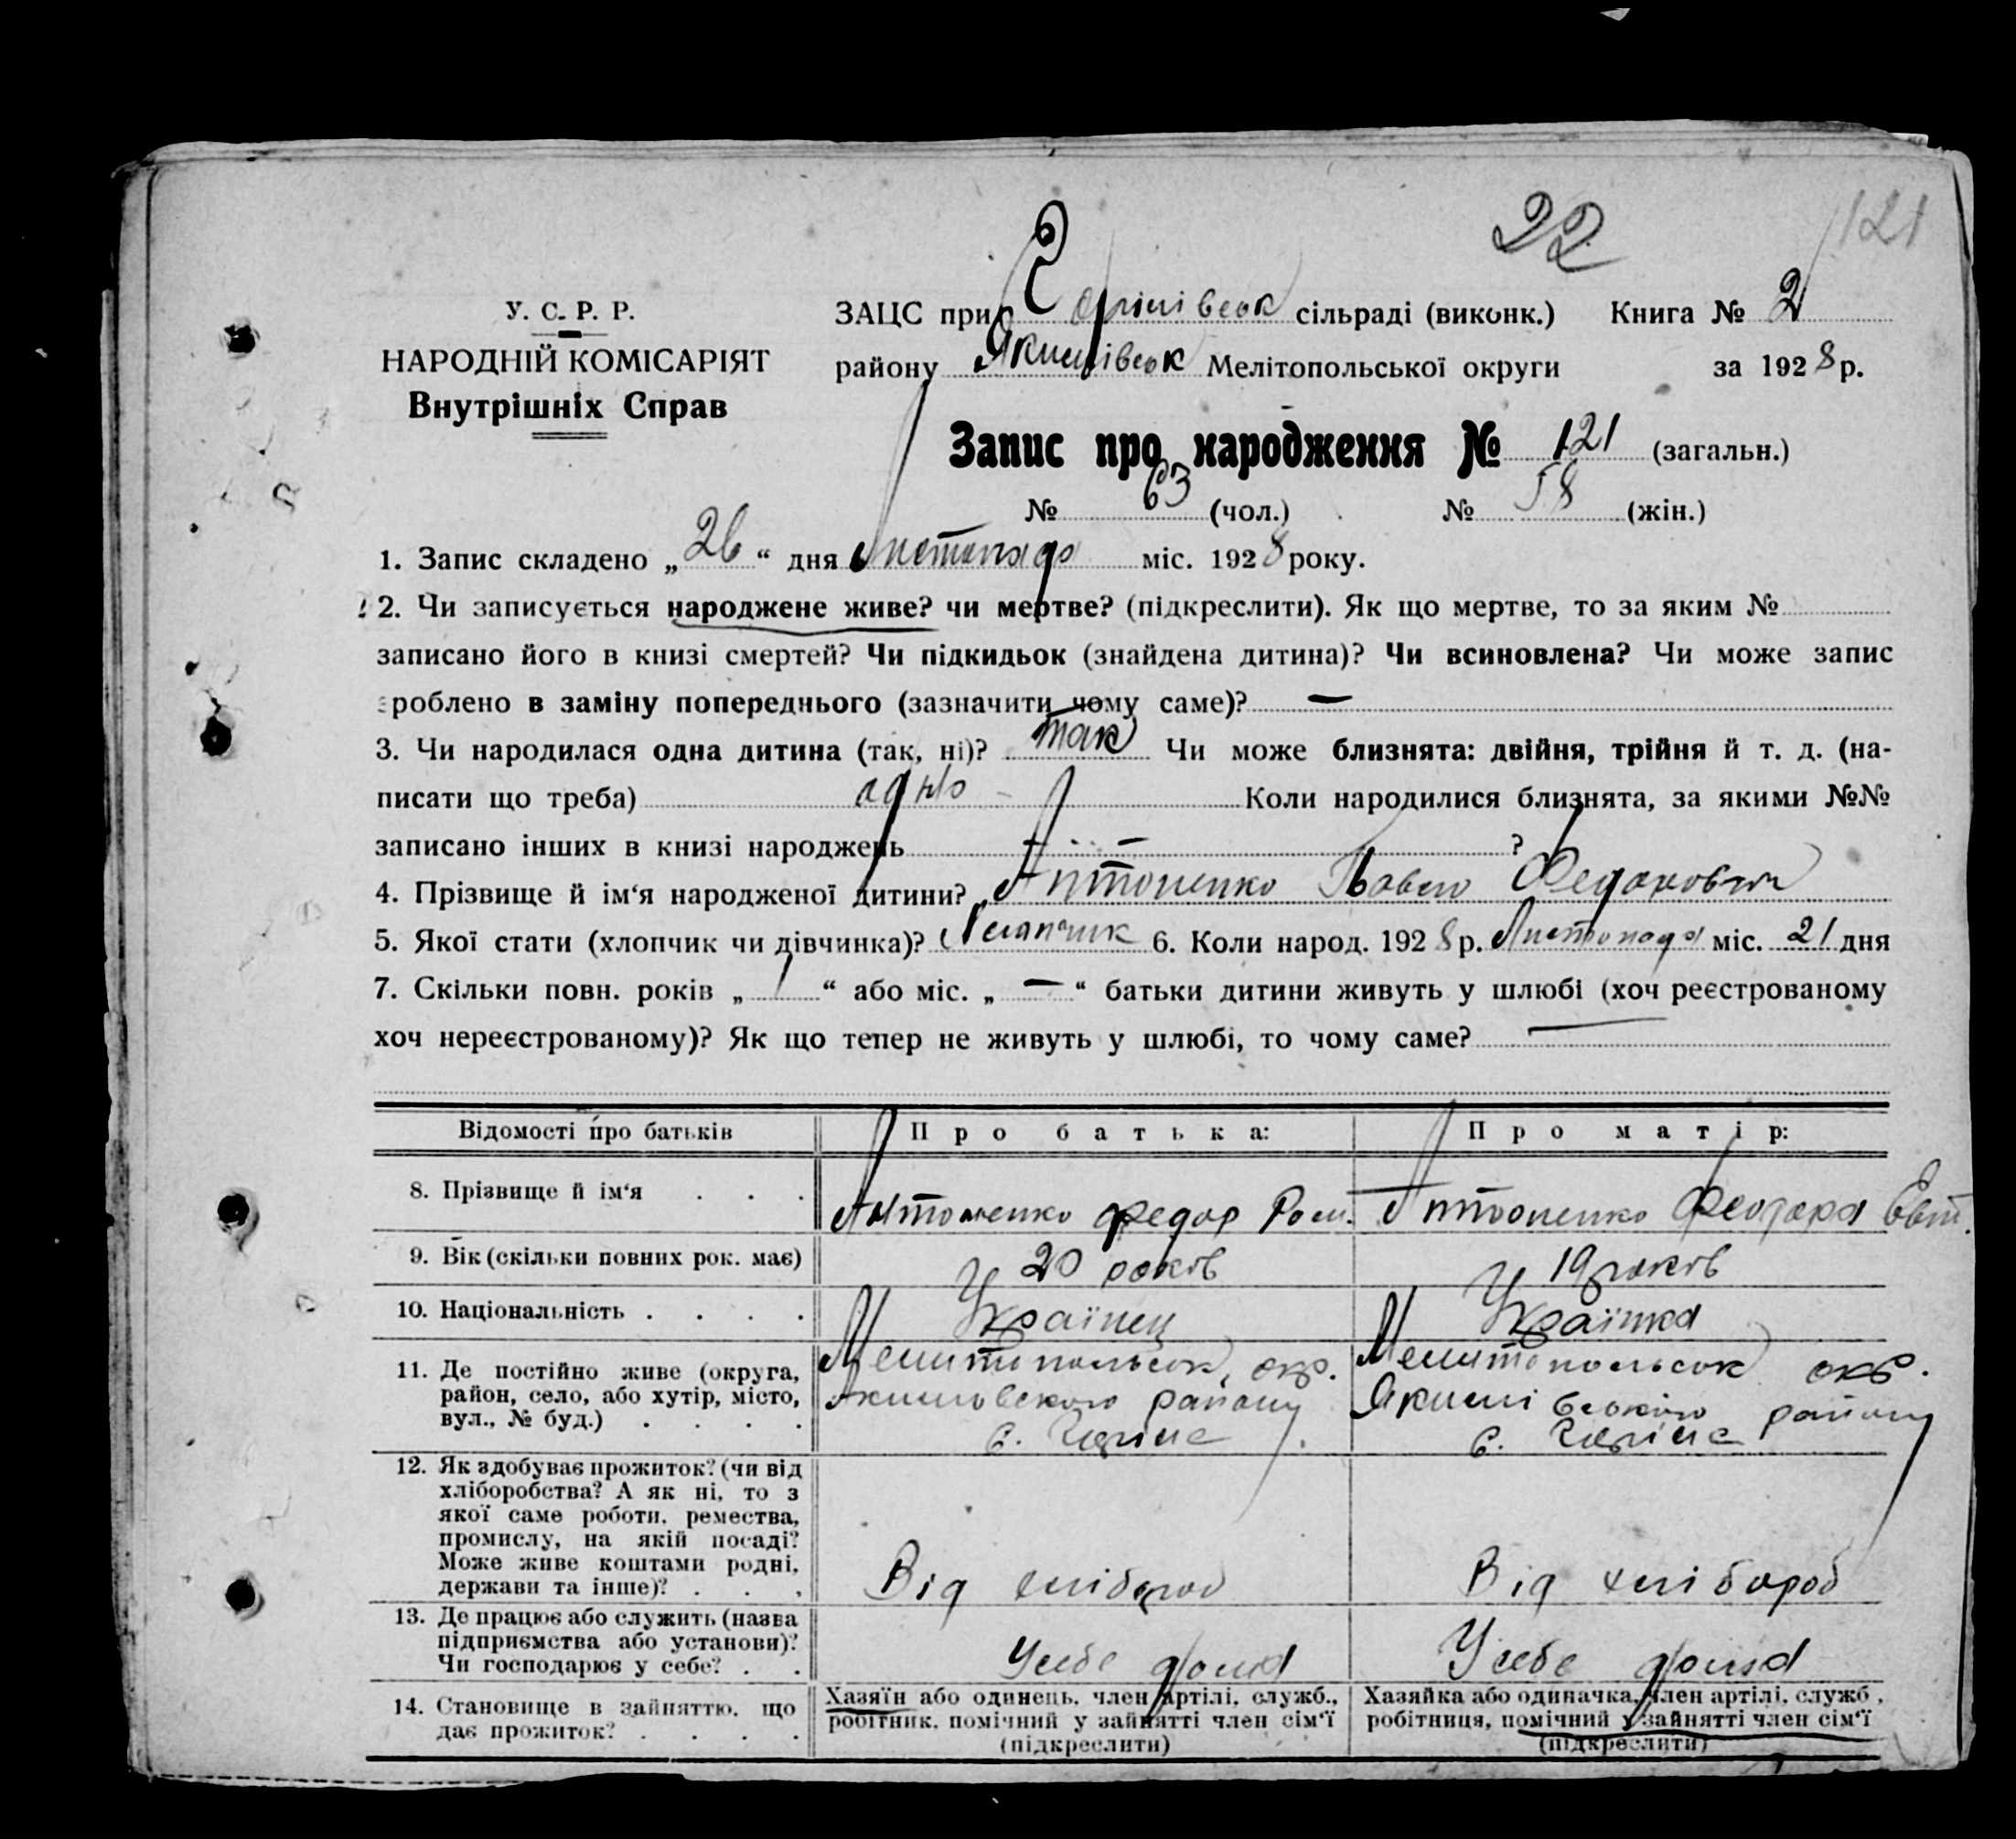 22 121
У. С. Р. Р.
НАРОДНІЙ КОМІСАРІЯТ
Внутрішніх Справ
ЗАЦС при сільраді (виконк.) Книга № 2
району Якимівськ Мелітопольської округи за 1928 р.
Запис про народження № 121 (загальн.)
№ 63 (чол.) № 58 (жін.)
1. Запис складено „26“ дня Листопада міс. 1928 року.
2. Чи записується народжене живе? чи мертве? (підкреслити). Як що мертве, то за яким №
записано його в книзі смертей? Чи підкидьок (знайдена дитина)? Чи всиновлена? Чи може запис
зроблено в заміну попереднього (зазначити чому саме)? —
3. Чи народилася одна дитина (так, ні)? так Чи може близнята: двійня, трійня й т. д. (на-
писати що треба) одно Коли народилися близнята, за якими №№
записано інших в книзі народжень — — ?
4. Прізвище й ім‘я народженої дитини? Антоненко Павло Федорович
5. Якої стати (хлопчик чи дівчинка)? 6. Коли народ. 1928 р. Листопада міс. 21 дня
7. Скільки повн. років „1“ або міс. „—“ батьки дитини живуть у шлюбі (хоч реєстрованому
хоч нереєстрованому)? Як що тепер не живуть у шлюбі, то чому саме?
Відомості про батьків Про батька: Про матір:
8. Прізвище й ім‘я . . . Антоненко Федор Ром. Антоненко Феодора Евт.
9. Вік (скільки повних рок. має) 20 років 19 років
10. Національність . . . . Українец Українка
11. Де постійно живе (округа, Мелитопольськ, окр. Мелитопольськ окр.
район, село, або хутір, місто, Якимовского району Якимівського району
вул., № буд.) . . . . с. с.
12. Як здобуває прожиток? (чи від
хліборобства? А як ні, то з
якої саме роботи, ремества,
промислу, на якій посаді?
Може живе коштами родні,
держави та інше)? . . . Від хлібороб Від хлібороб
13. Де працює або служить (назва
підприємства або установи)?
Чи господарює у себе? . . У себе дома У себе дома
14. Становище в зайняттю, що
дає прожиток? . . . .
Хазяїн або одинець, член артілі, служб.,
робітник, помічний у зайнятті член сім‘ї
(підкреслити)
Хазяйка або одиначка, член артілі, служб.,
робітниця, помічний у зайнятті член сім‘ї
(підкреслити)